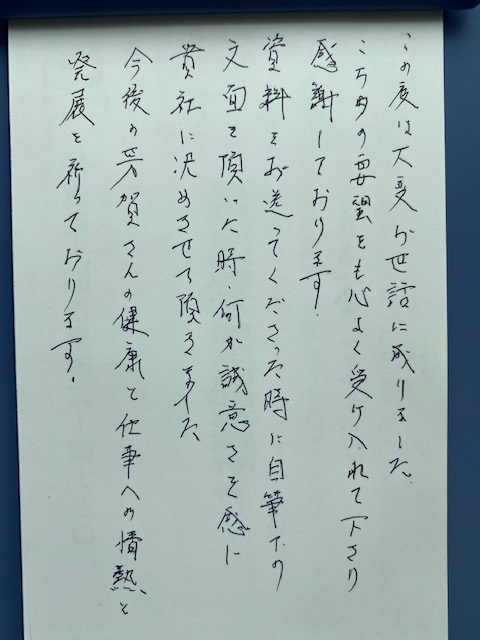 この度は大変お世話に成りました。
こちらの要望をも心よく受け入れて下さり
感謝しております。
資料をお送りくださった時に自筆での
文面を頂いた時、何か誠意さを感じ
貴社に決めさせて頂きました。
今後の芳賀さんの健康と仕事への情熱と
発展を祈っております。